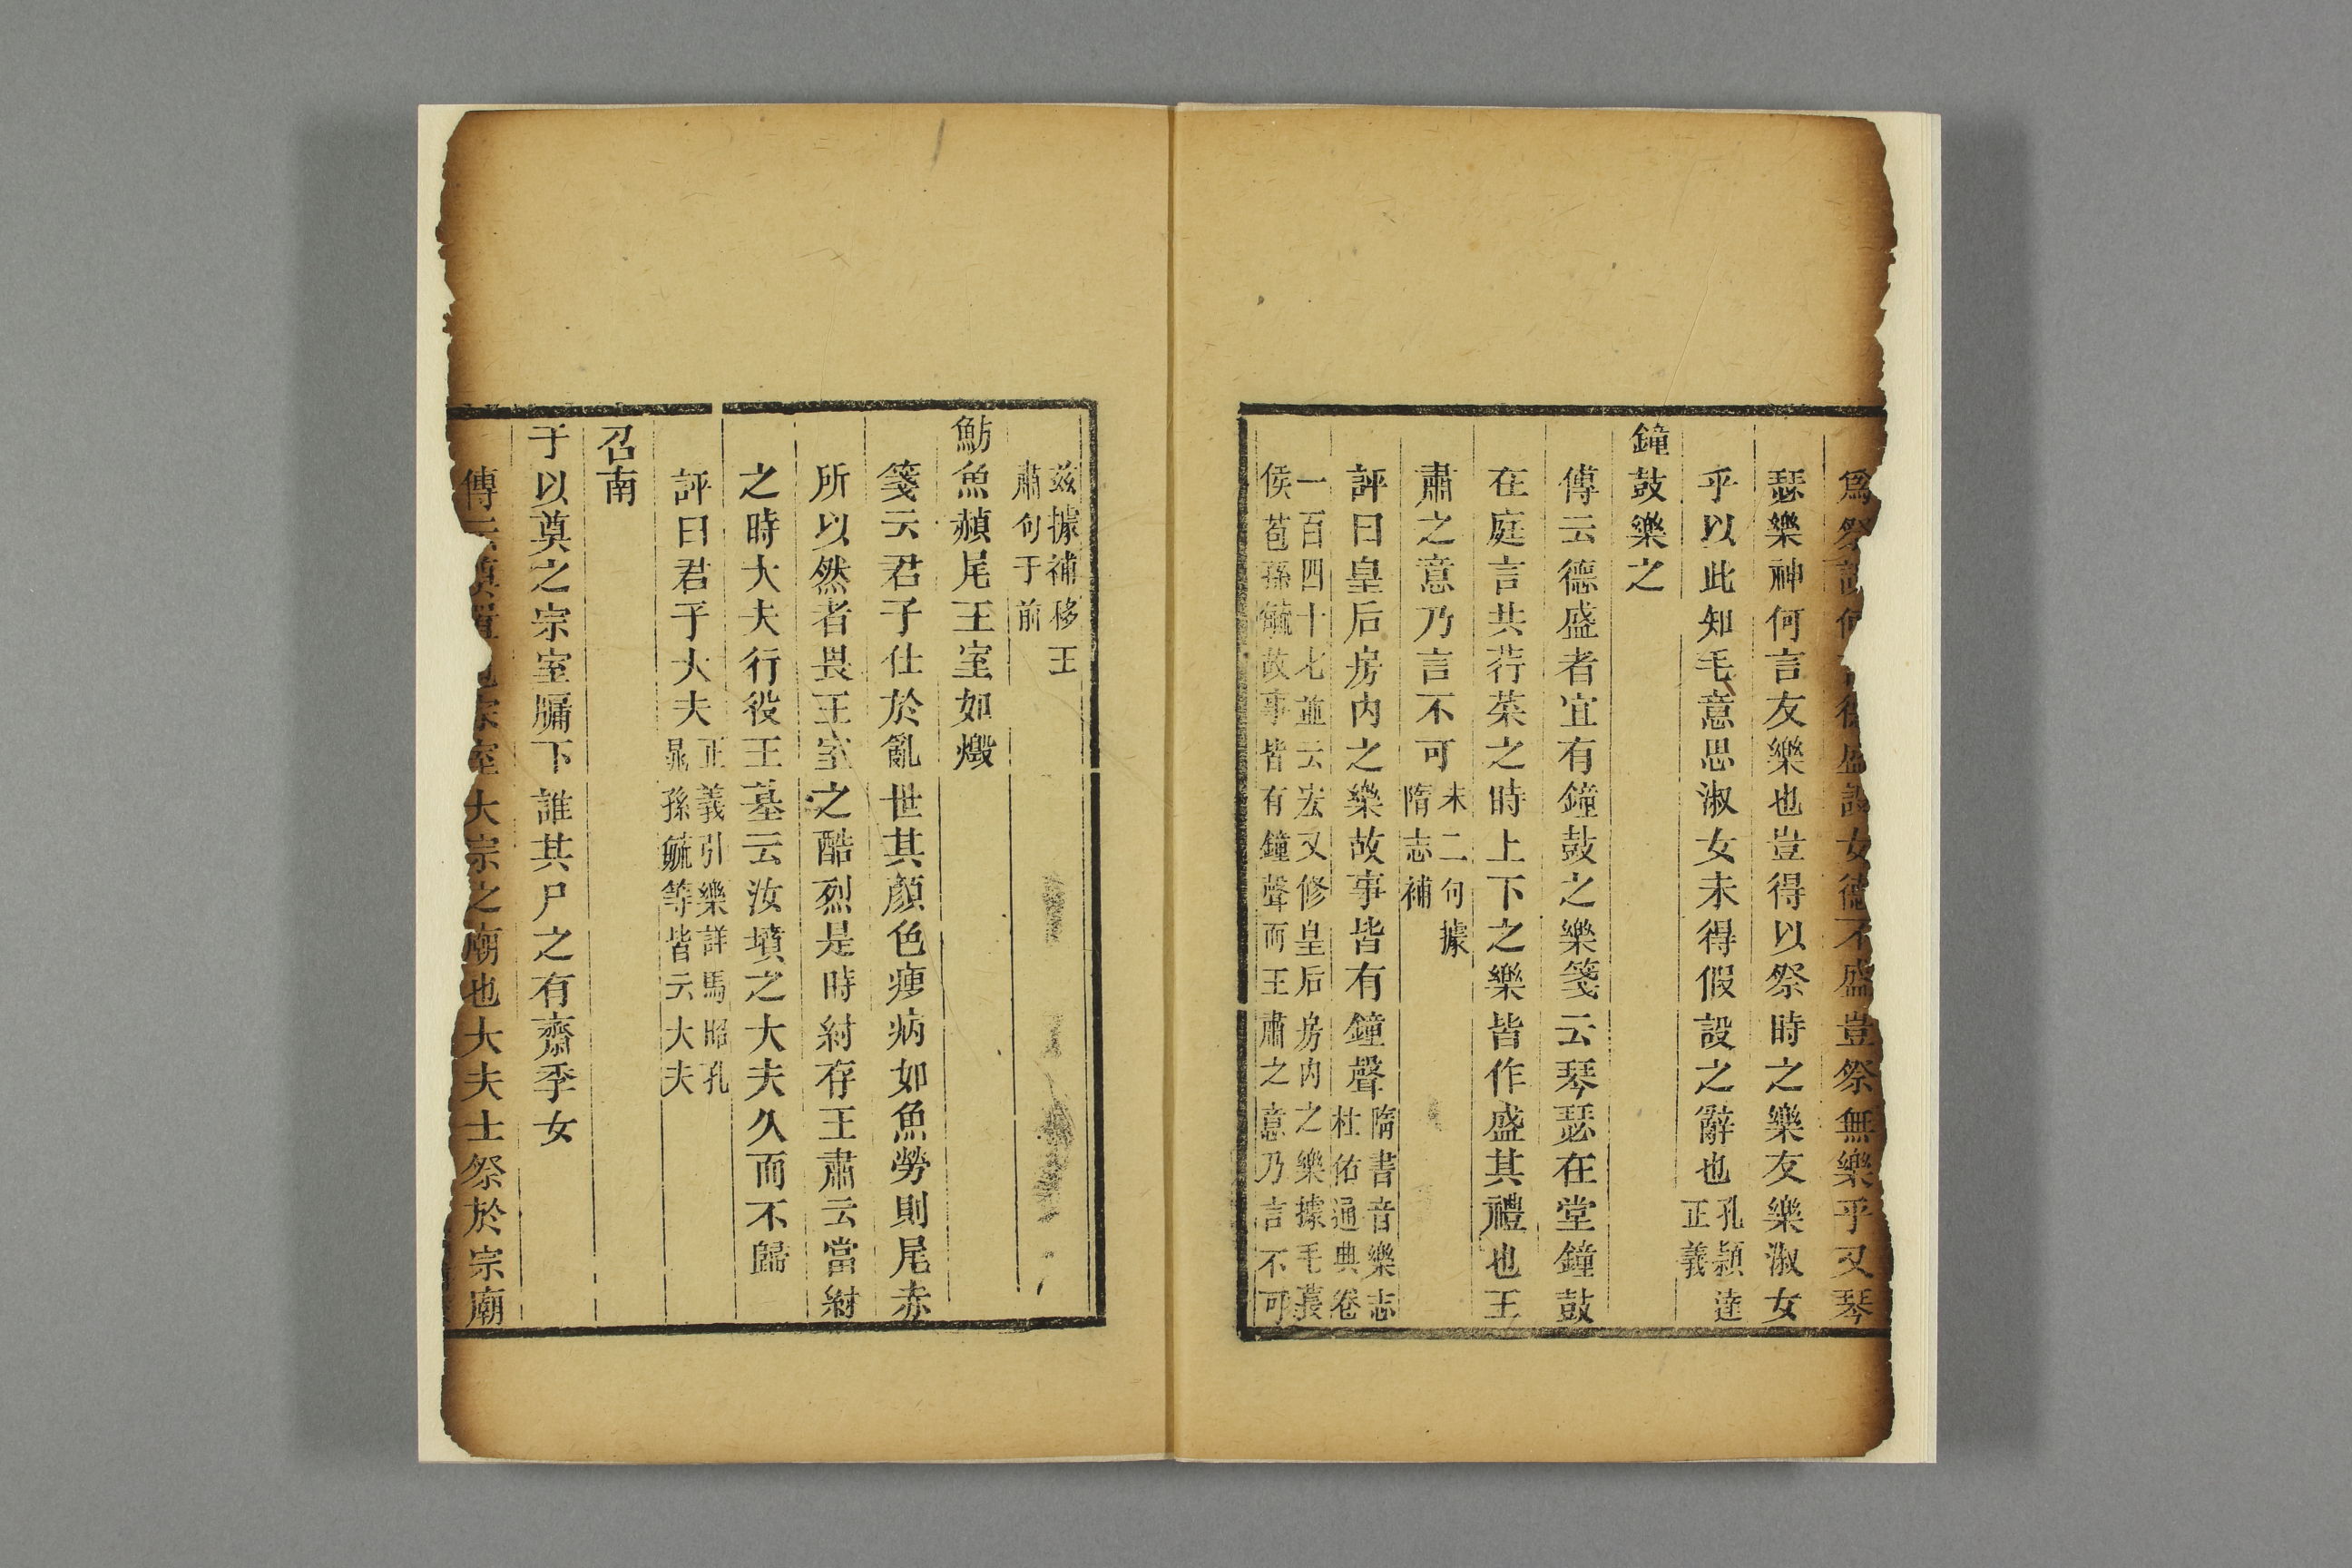 爲祭設何德盛設女德不盛豈祭無樂乎又琴
瑟樂神何言友樂也豈得以祭時之樂友樂淑女
乎以此知毛意思淑女未得假設之辭也孔穎達
正義
鐘鼓樂之
傳云德盛者宜有鐘鼓之樂箋云琴瑟在堂鐘鼓
在庭言共荇菜之時上下之樂皆作盛其禮也王
肅之意乃言不可末二句據
隋志補
評曰皇后房内之樂故事皆有鐘聲隋書音樂志
杜佑通典卷
一百四十七並云宏又修皇后房内之樂據毛萇
侯苞孫毓故事皆有鐘聲而王肅之意乃言不可
兹據補移王
肅句于前
魴魚赬尾王室如燬
箋云君子仕於亂世其顏色瘦病如魚勞則尾赤
所以然者畏王室之酷烈是時紂存王肅云當紂
之時大夫行役王基云汝墳之大夫久而不歸
評曰君子大夫正義引樂詳馬昭孔
晁孫毓等皆云大夫
召南
于以奠之宗室牖下誰其尸之有齋季女
傳云奠置也宗室大宗之廟也大夫士祭於宗廟